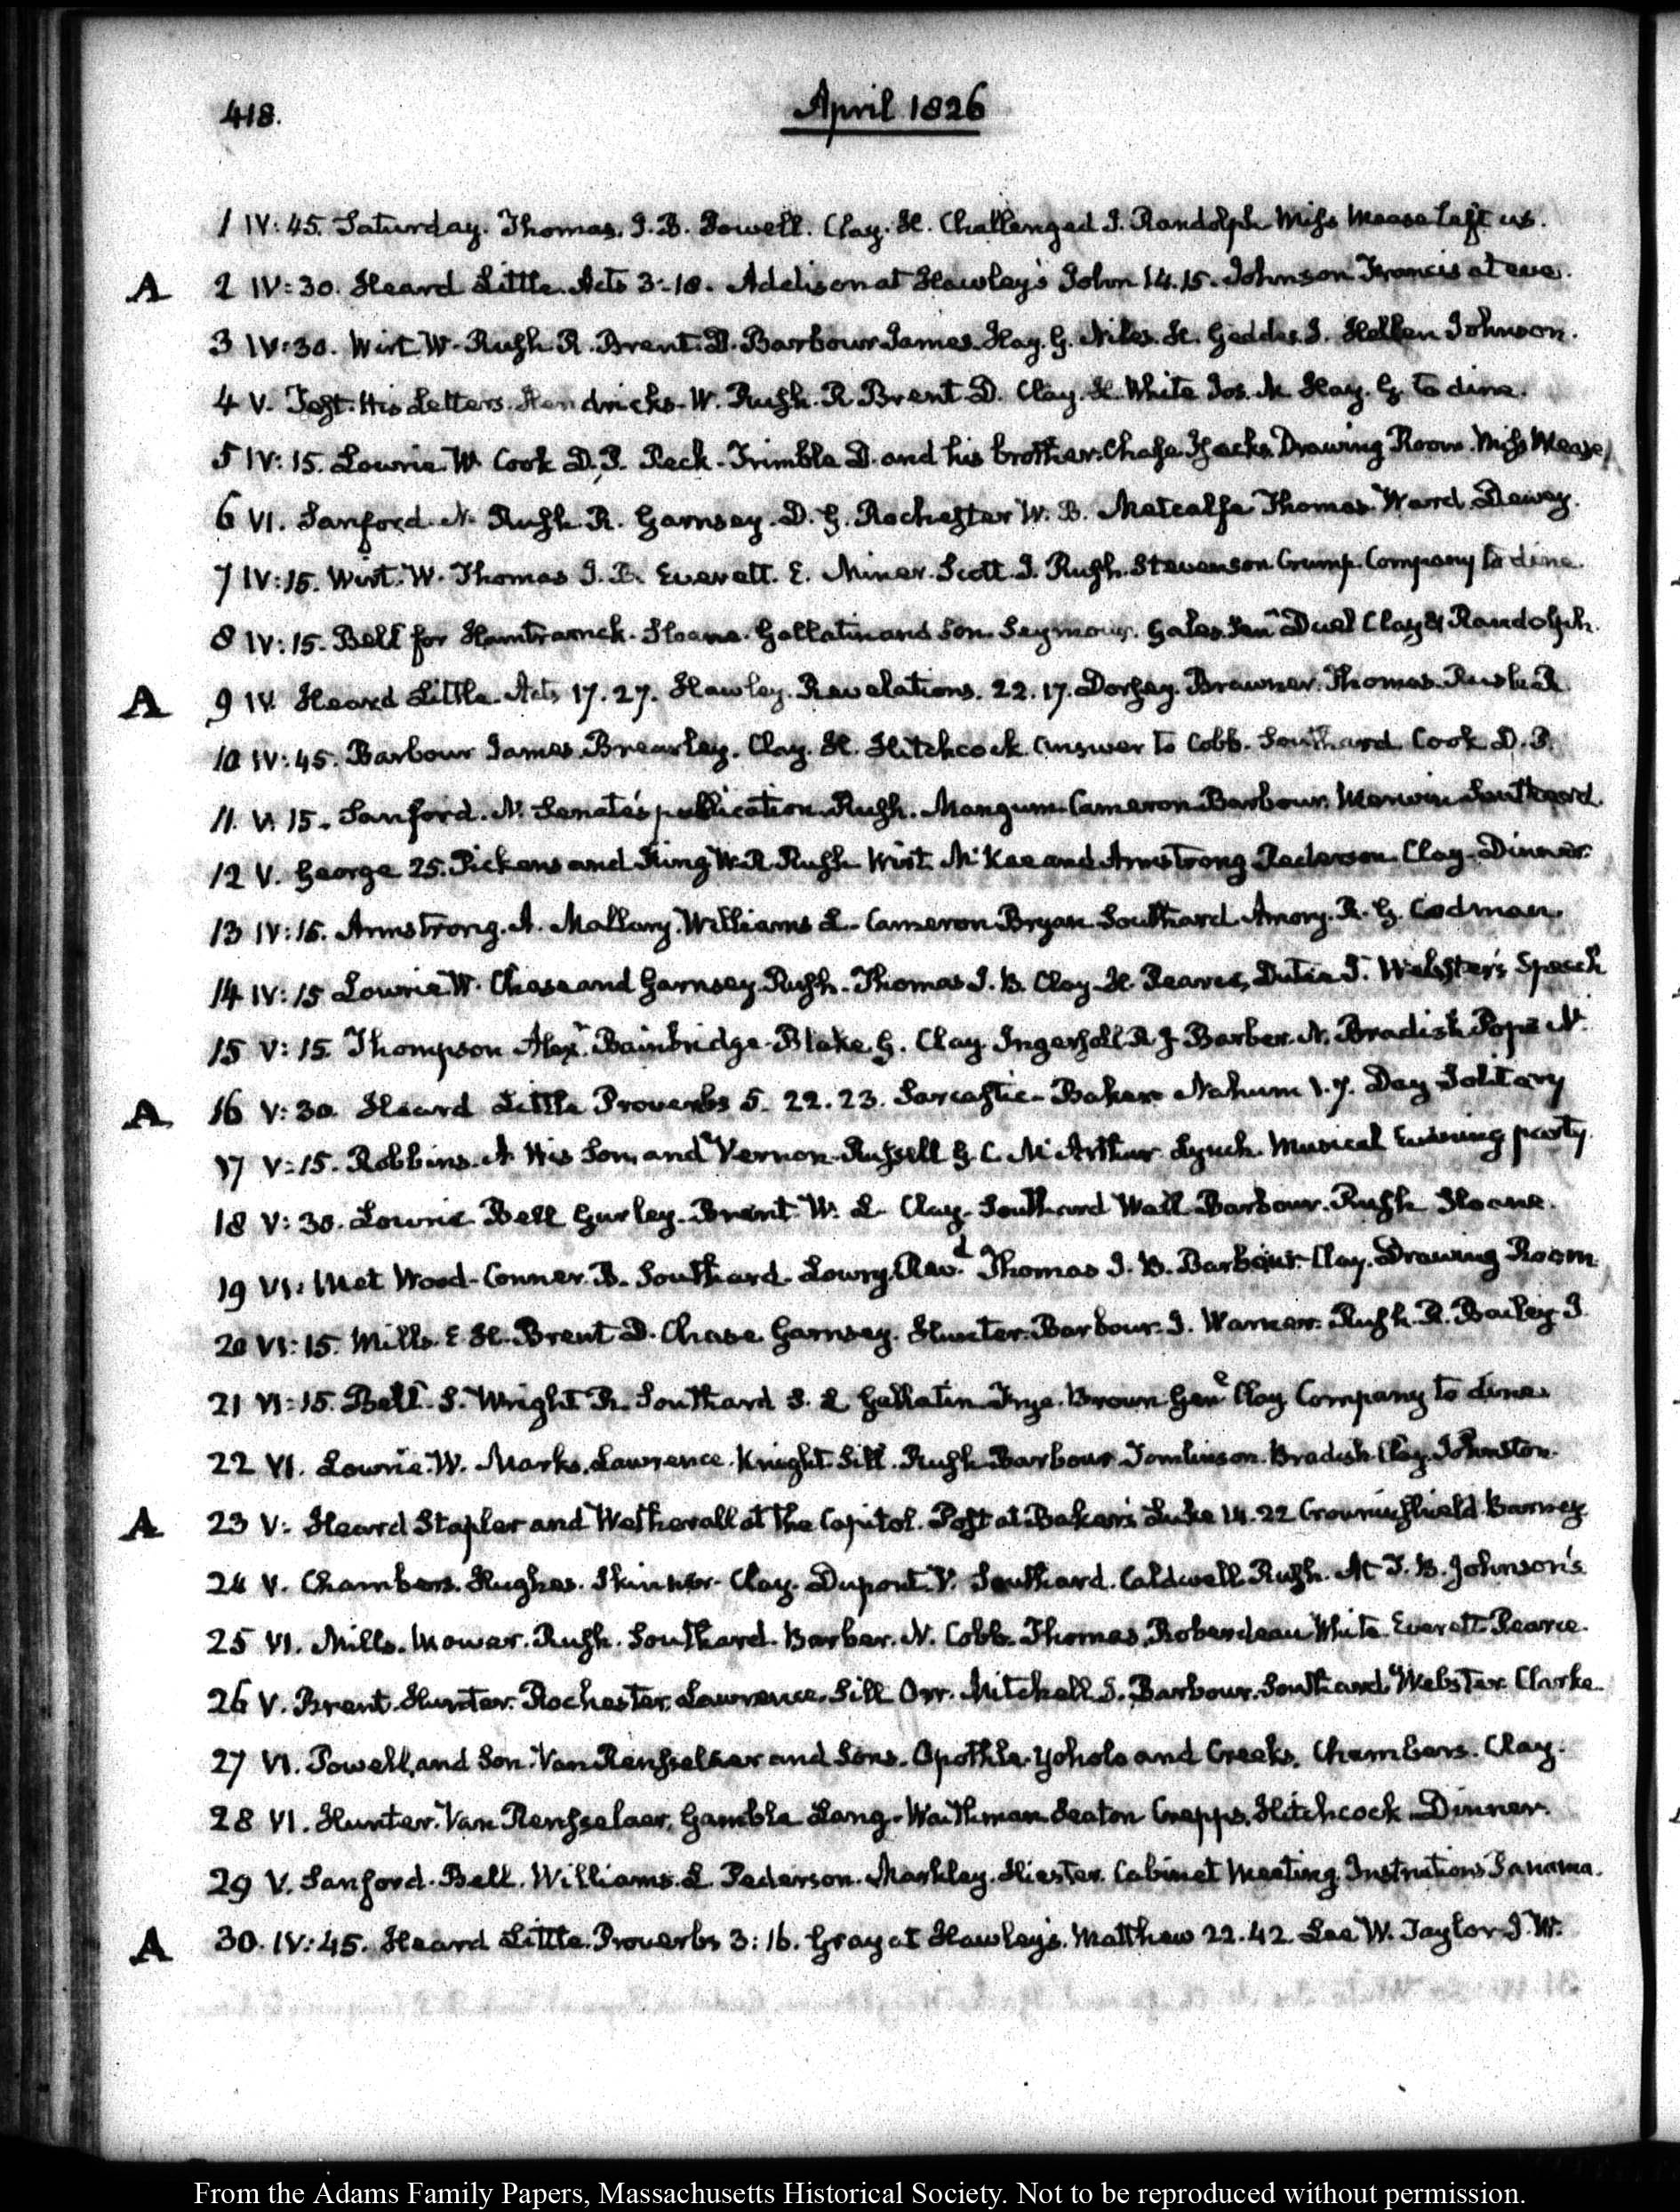 418.
April 1826
1 IV:45. Saturday. Thomas. J. B. Powell. Clay. H. Challenged J. Randolph Miss Mease left us.
A 2 IV:30. Heard Little. Acts 3:18. Addison at Hawley's John 14.15. Johnson Francis at eve.
3 IV:30. Wirt W. Rush R. Brent. D. Barbour James. Hay. G. Niles. H. Geddes. J. Hellen Johnson.
4 V. Test. His Letters. Hendricks. W. Rush. R Brent. D. Clay. H. White Jos. M Hay. G. to dine.
5 IV:15. Lowrie W. Cook D. P. Peck. Trimble D. and his brother. Chase Drawing Room. Miss Mease
6 VI. Sanford. N. Rush R. Garnsey. D. G. Rochester W. B. Metcalfe Thomas Ward. Dewey.
7 IV:15. Wirt. W. Thomas J. B. Everett. E. Miner. Scott. J. Rush. Stevenson Crump. Company to dine.
8 IV:15. Bell for Hamtramck. Sloane. Gallatin and Son. Seymour. Gales Senr. Duel Clay & Randolph.
A 9 IV. Heard Little. Acts 17.27. Hawley. Revelations. 22.17. Dorsey. Brawner. Thomas. Rush R
10 IV:45. Barbour James. Brearley. Clay. H. Hitchcock. Answer to Cobb. Southard. Cook D. P.
11. V. 15. Sanford. N. Senate's publication. Rush. Mangum. Cameron. Barbour. Merwin Southard.
12 V. George 25. Pickens and King W. R. Rush Wirt. McKee and Armstrong Pederson. Clay. Dinner.
13 IV:15. Armstrong. A. Mallary. Williams L. Cameron Bryan. Southard Amory. R. G. Codman.
14 IV:15 Lowrie W. Chase and Garnsey. Rush. Thomas J. B. Clay. H. Pearce, Dutee J. Webster's Speech
15 V:15. Thompson Alexr. Bainbridge. Blake. G. Clay. Ingersoll. R J Barber. N. Bradish. Pope N.
A 16 V:30. Heard Little Proverbs 5. 22.23. Sarcastic. Baker. Nahum 1.7. Day Solitary
17 V:15. Robbins. A His Son, and Vernon. Russell G. C. McArthur. Lynch. Musical Evening party.
18 V:30. Lowrie Bell Gurley. Brent W. L. Clay. Southard Wall. Barbour. Rush Sloane.
19 VI. Met Wood. Conner. B. Southard. Lowry. Revd. Thomas J. B. Barbour. Clay. Drawing Room.
20 VI:15. Mills. E. H. Brent D. Chase Garnsey. Hunter. Barbour. J. Warner. Rush. R. Bailey J.
21 VI:15. Bell. S. Wright R. Southard S. L Gallatin. Frye. Brown Genl. Clay Company to dine.
22 VI. Lowrie. W. Marks. Lawrence. Knight. Sill. Rush. Barbour. Tomlinson. Bradish. Clay. Johnston.
A 23 V. Heard Stapler and Wetherall at the Capitol. Post at Baker's Luke 14.22 Crowninshield. Barney.
24 V. Chambers. Hughes. Skinner. Clay. Dupont. V. Southard. Caldwell. Rush. At J. B. Johnson's
25 VI. Mills. Mower. Rush. Southard. Barber. N. Cobb. Thomas. Roberdeau White. Everett. Pearce.
26 V. Brent. Hunter. Rochester. Lawrence. Sill Orr. Mitchell. S. Barbour. Southard. Webster. Clarke.
27 VI. Powell, and Son. Van Rensselaer and Sons. Opothle Yoholo and Creeks. Chambers. Clay.
28 VI. Hunter. Van Rensselaer, Gamble Lang. Waithman Seaton Crepps. Hitchcock. Dinner.
29 V. Sanford. Bell. Williams. L. Pederson. Markley. Hiester. Cabinet Meeting. Instructions Panama.
A 30. IV:45. Heard Little. Proverbs 3:16. Gray at Hawley's. Matthew 22.42. Lee W. Taylor J. W.
From the Adams Family Papers, Massachusetts Historical Society. Not to be reproduced without permission.